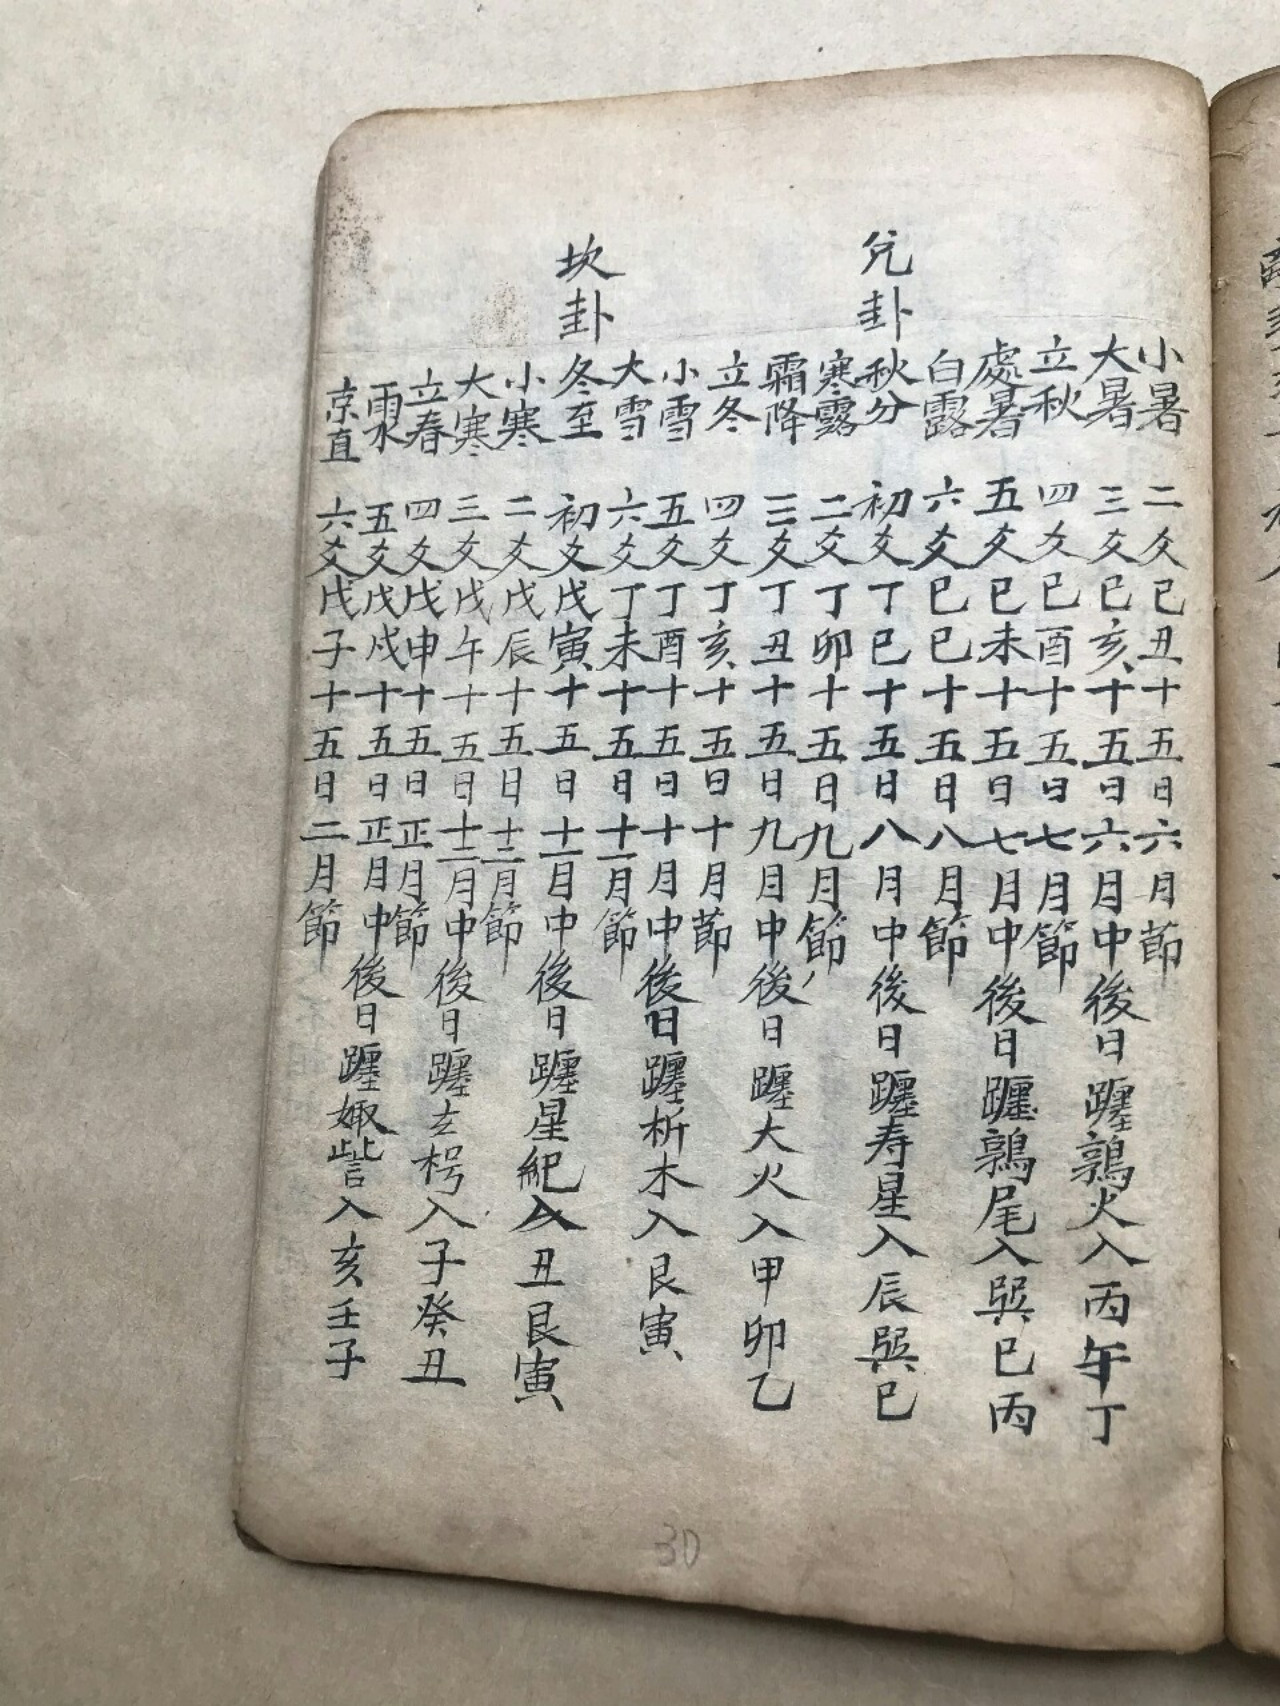 小暑 二爻己丑十五日六月節
大暑 三爻己亥十五日六月中後日躔鶉火入丙午丁
立秋 四爻己酉十五日七月節
處暑 五爻己未十五日七月中後日躔鶉尾入巽巳丙
白露 六爻巳巳十五日八月節
兌卦 秋分 初爻丁巳十五日八月中後日躔寿星入辰巽巳
寒露 二爻丁卯十五日九月節
霜降 三爻丁丑十五日九月中後日躔大火入甲卯乙
立冬 四爻丁亥十五日十月節
小雪 五爻丁酉十五日十月中後日躔析木入艮寅
大雪 六爻丁未十五日十一月節
坎卦 冬至 初爻戊寅十五日十一月中後日躔星紀入丑艮寅
小寒 二爻戊辰十五日十二月節
大寒 三爻戊午十五日十二月中後日躔玄枵入子癸丑
立春 四爻戊申十五日正月節
雨水 五爻戊戌十五日正月中後日躔娵訾入亥壬子
京直 六爻戊子十五日二月節
30